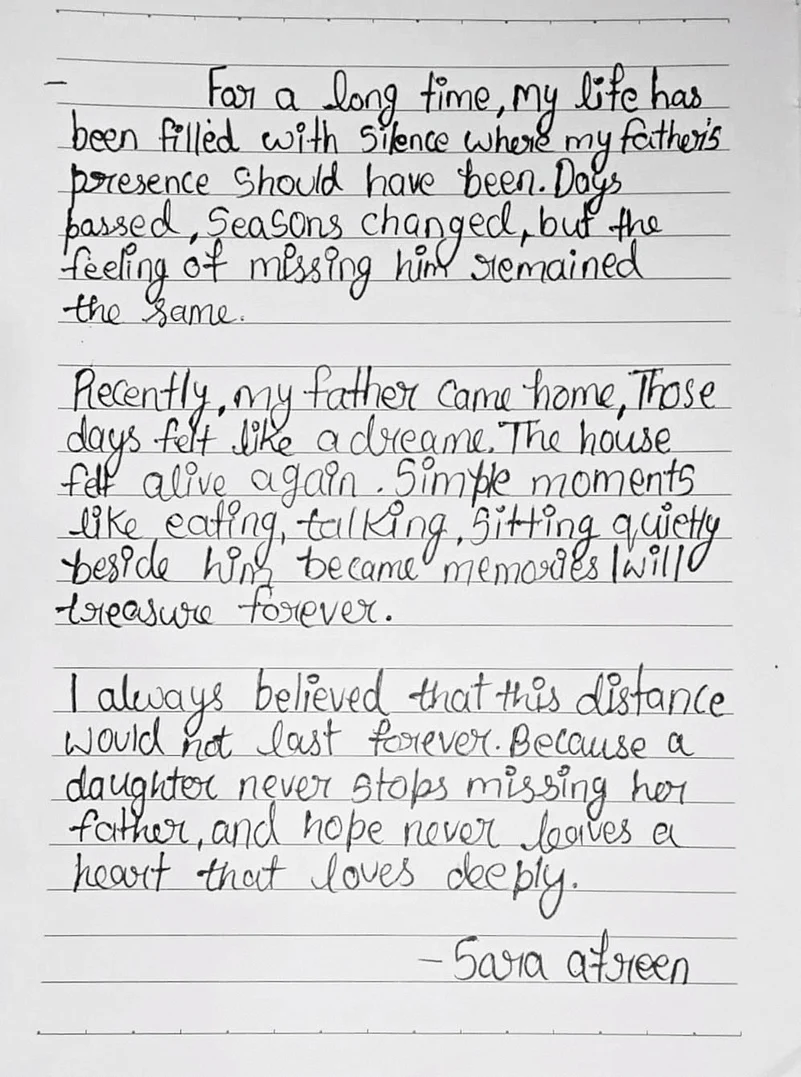 For a long time, my life has
been filled with silence where my father's
presence should have been. Days
passed, Seasons changed, but the
feeling of missing him remained
the same.
Recently, my father came home, Those
days felt like a dreame. The house
felt alive again. Simple moments
like eating, talking, Sitting quietly
beside him became memories I will
treasure forever.
I always believed that this distance
would not last forever. Because a
daughter never stops missing her
father, and hope never leaves a
heart that loves deeply.
- Sara afreen